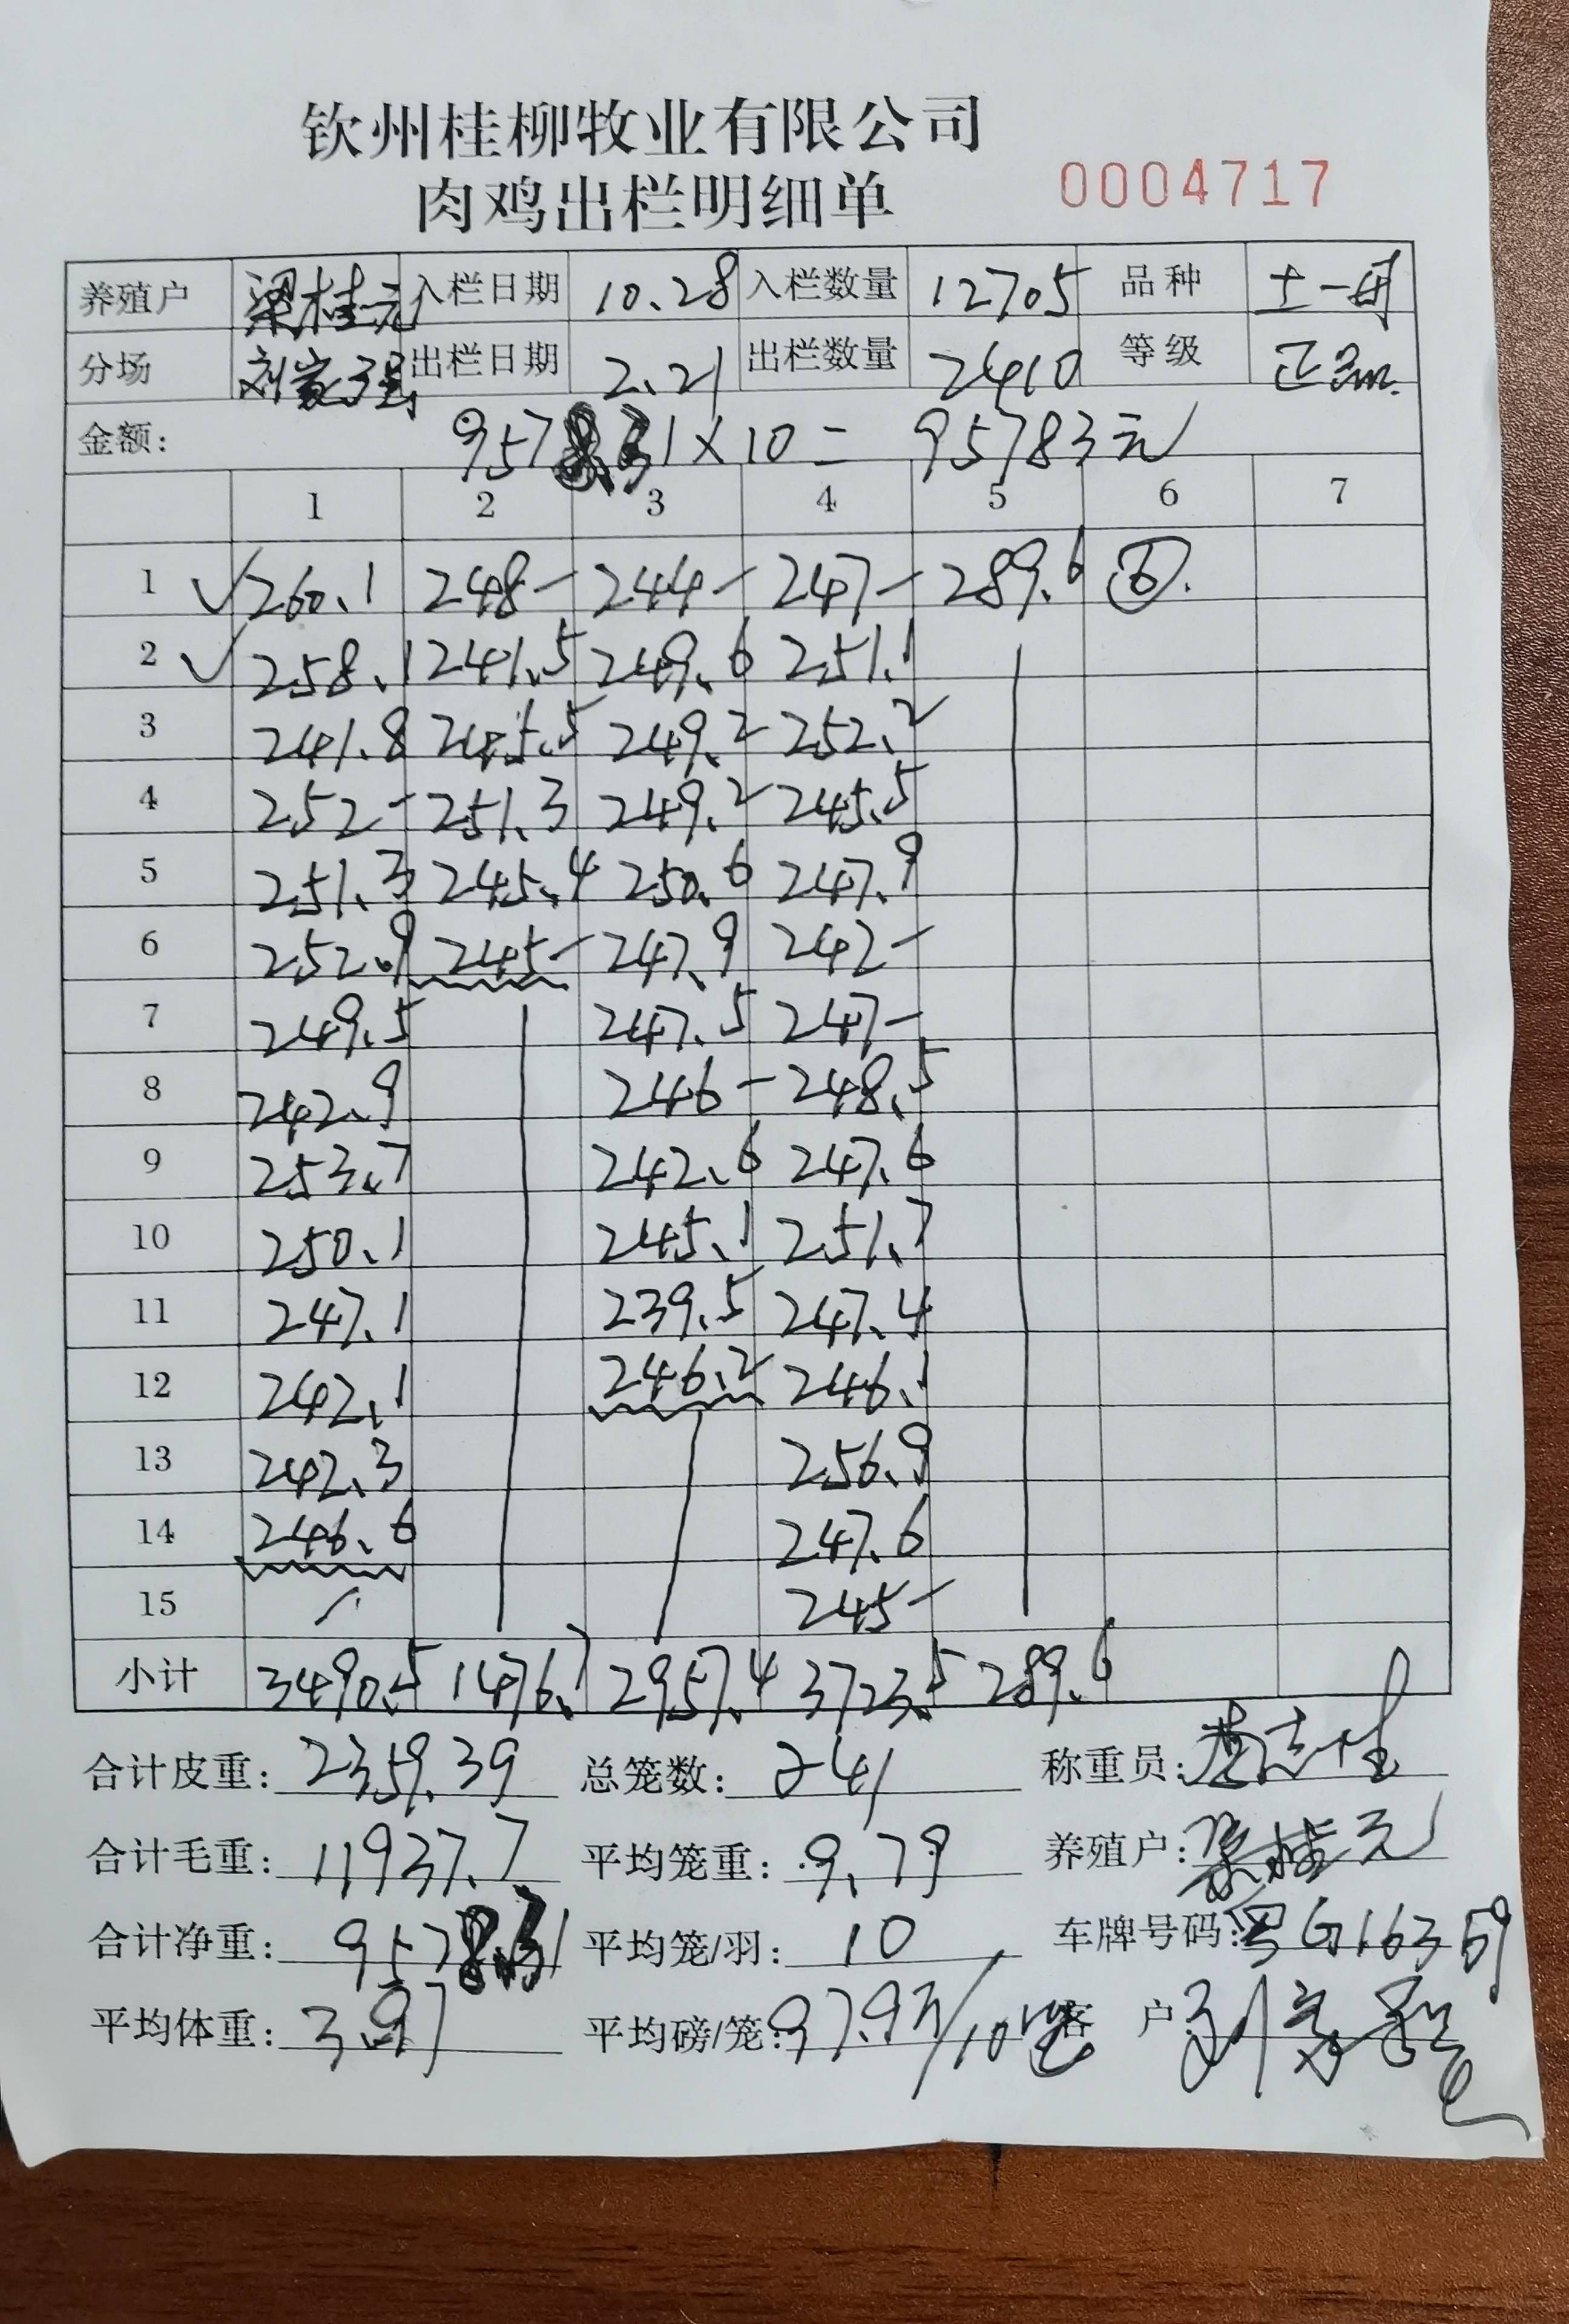 钦州桂柳牧业有限公司
肉鸡出栏明细单 0004717
养殖户 梁桂元 入栏日期 10.28 入栏数量 12705 品种 土一
分场 刘家强 出栏日期 2.21 出栏数量 2410 等级 正
金额: 9578.31×10=95783元
1 2 3 4 5 6 7
1 ✓260.1 248- 244- 247- 289.6 ⑥.
2 ✓258.1 241.5 249.6 251.1
3 241.8 245.5 249.2 252.2
4 252- 251.3 249.2 245.5
5 251.3 245.4 250.6 247.9
6 252.9 245- 247.9 242-
7 249.5 247.5 247-
8 242.9 246- 248.5
9 253.7 242.6 247.6
10 250.1 245.1 251.7
11 247.1 239.5 247.4
12 242.1 246.2 246.1
13 242.3 256.9
14 246.6 247.6
15 245-
小计 3490.5 1476.7 2957.4 3723.5 289.6
合计皮重: 2359.39 总笼数: 241 称重员: 志
合计毛重: 11937.7 平均笼重: 9.79 养殖户: 梁桂元
合计净重: 9578.31 平均笼/羽: 10 车牌号码: 粤G16369
平均体重: 3.97 平均磅/笼: 97.93/10笼 客户: 刘